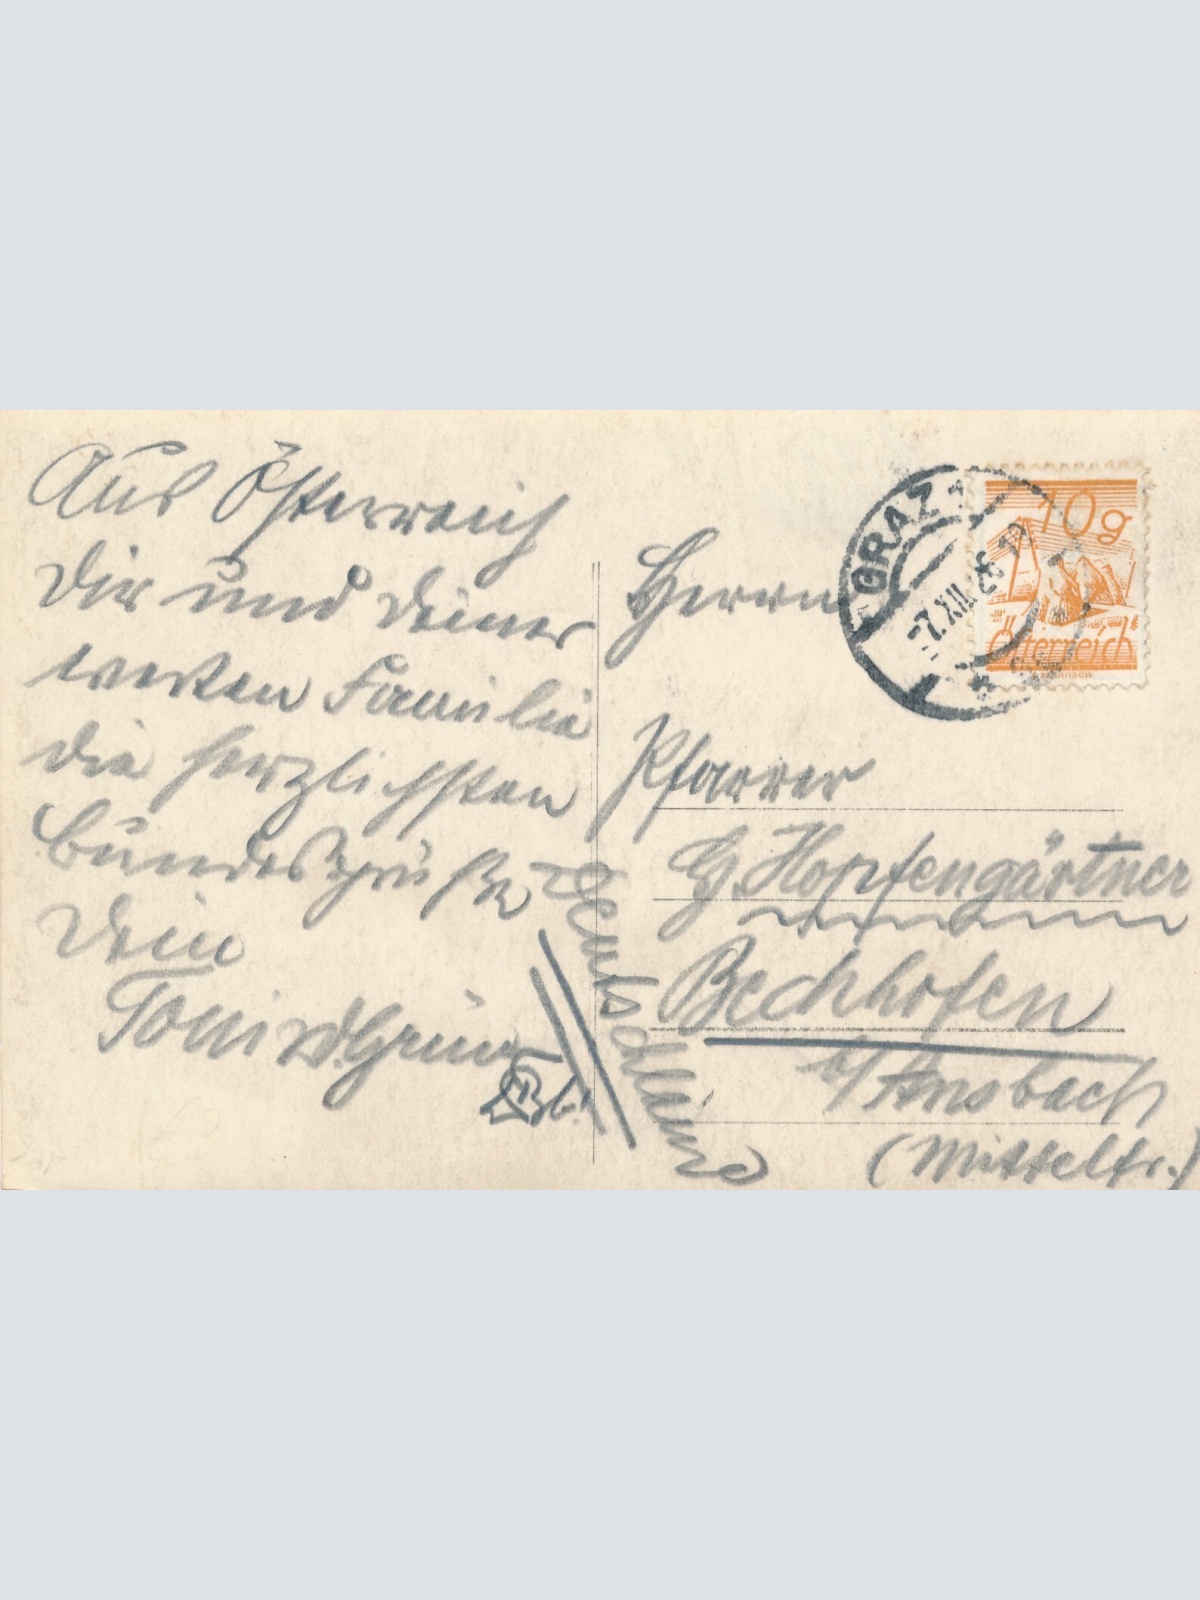 Aus Österreich
Dir und Deiner
werten Familie
die herzlichsten
Bundesgrüße
Dein
Toni
Herrn
Pfarrer
G. Hopfengärtner
Bechhofen
b/Ansbach
(Mittelfr.)
Deutschland
GRAZ 1
-7.XII.26
10g
Österreich